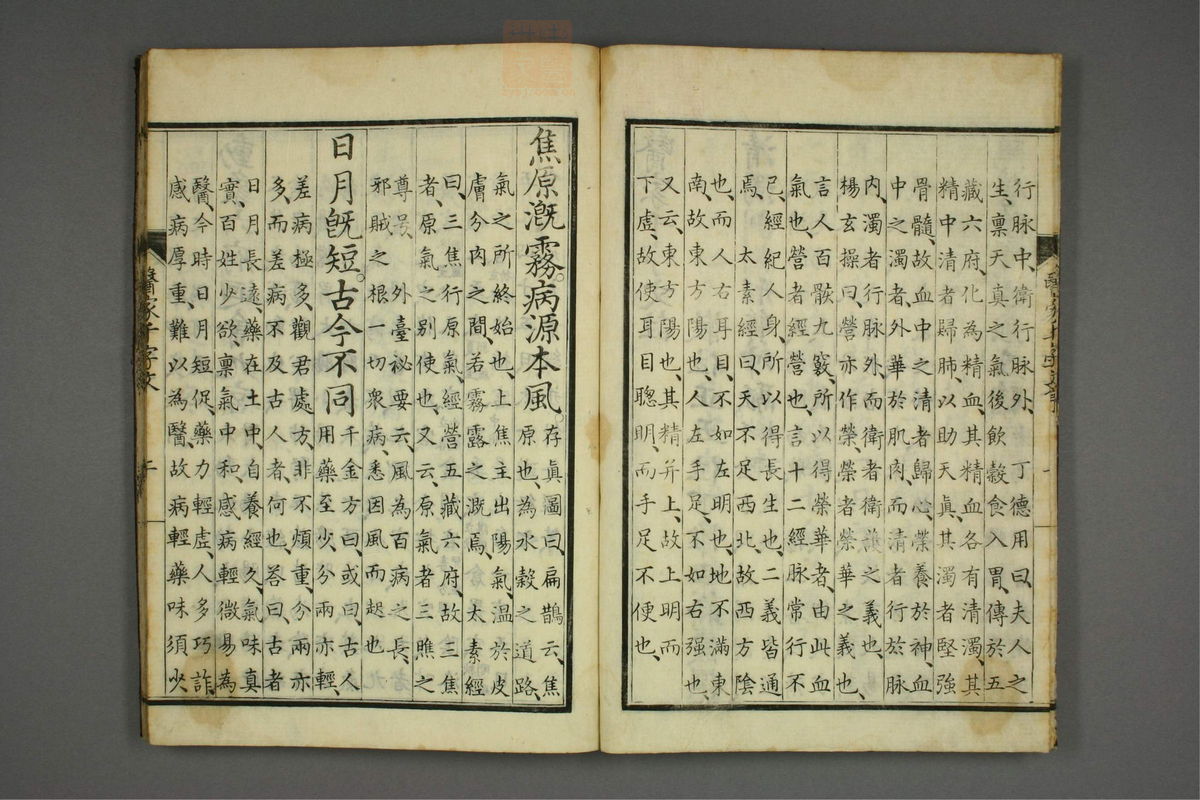 行脉中、衛行脉外、丁德用曰、夫人之
生、禀天真之氣、後飲穀食、入胃、傳於五
藏六府、化為精血、其精血各有清濁、其
精中清者歸肺、以助天真、其濁者堅強
骨髓、故血中之清者歸心、榮養於神、血
中之濁者、外華於肌肉、而清者行於脉
內、濁者行脉外、而衛者衛護之義也、
楊玄操曰、營亦作榮、榮者榮華之義也、
言人百骸九竅、所以得榮華者、由此血
氣也、營者經營也、言十二經脉常行不
已、經紀人身、所以得長生也、二義皆通
焉、太素經曰、天不足西北、故西方陰
也、而人右耳目、不如左明也、地不滿東
南、故東方陽也、人左手足、不如右强也、
又云、東方陽也、其精并上、故上明而
下虛、故使耳目聰明、而手足不便也、
焦原漑霧。病源本風。存真圖曰、扁鵲云、焦
原也、為水穀之道路、
氣之所終始也、上焦主出陽氣、温於皮
膚分肉之間、若霧露之漑焉、太素經
曰、三焦行原氣、經營五藏六府、故三焦
者、原氣之别使也、又云、原氣者三焦之
尊号、外臺秘要云、風為百病之長、
邪賊之根一切衆病、悉因風而起也
日月旣短。古今不同千金方曰、或曰、古人
用藥至少、分兩亦輕、
差病極多、觀君處方、非不煩重、分兩亦
多、而差病不及古人者、何也、荅曰、古者
日月長遠、藥在土中、自養經久、氣味真
實、百姓少欲、禀氣中和、感病輕微、易為
醫、今時日月短促、藥力輕虛、人多巧詐、
感病厚重、難以為醫、故病輕藥味須少、
醫家千字文